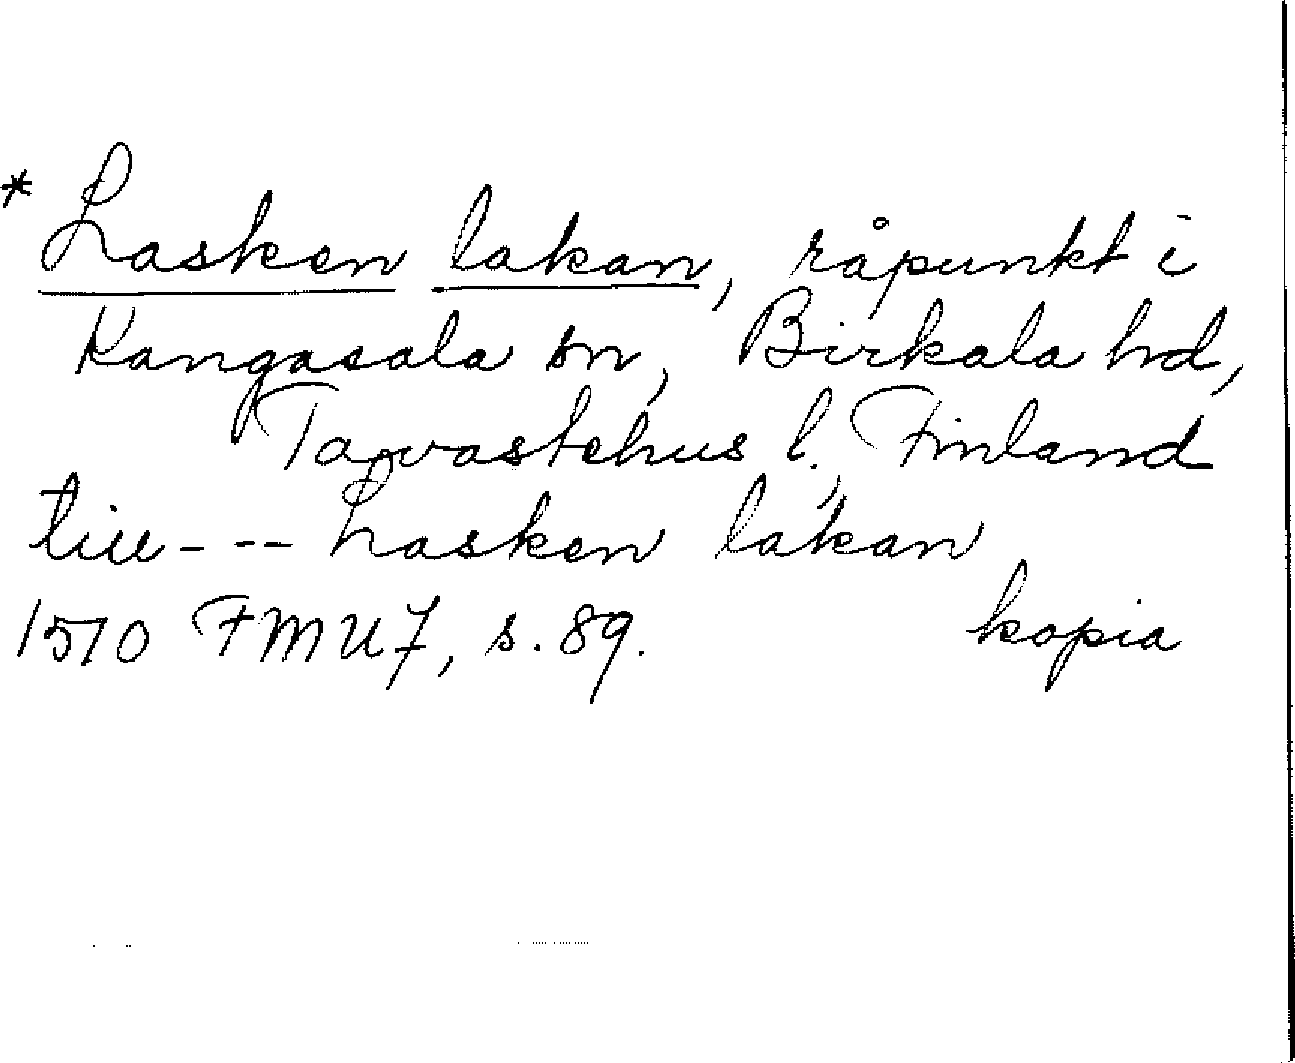 * Lasken lakan, råpunkt i
Kangasala sn, Birkala hd,
Tavvastehus l., Finland
till - -- Lasken lakan
1510 FMU 7, s. 89. kopia